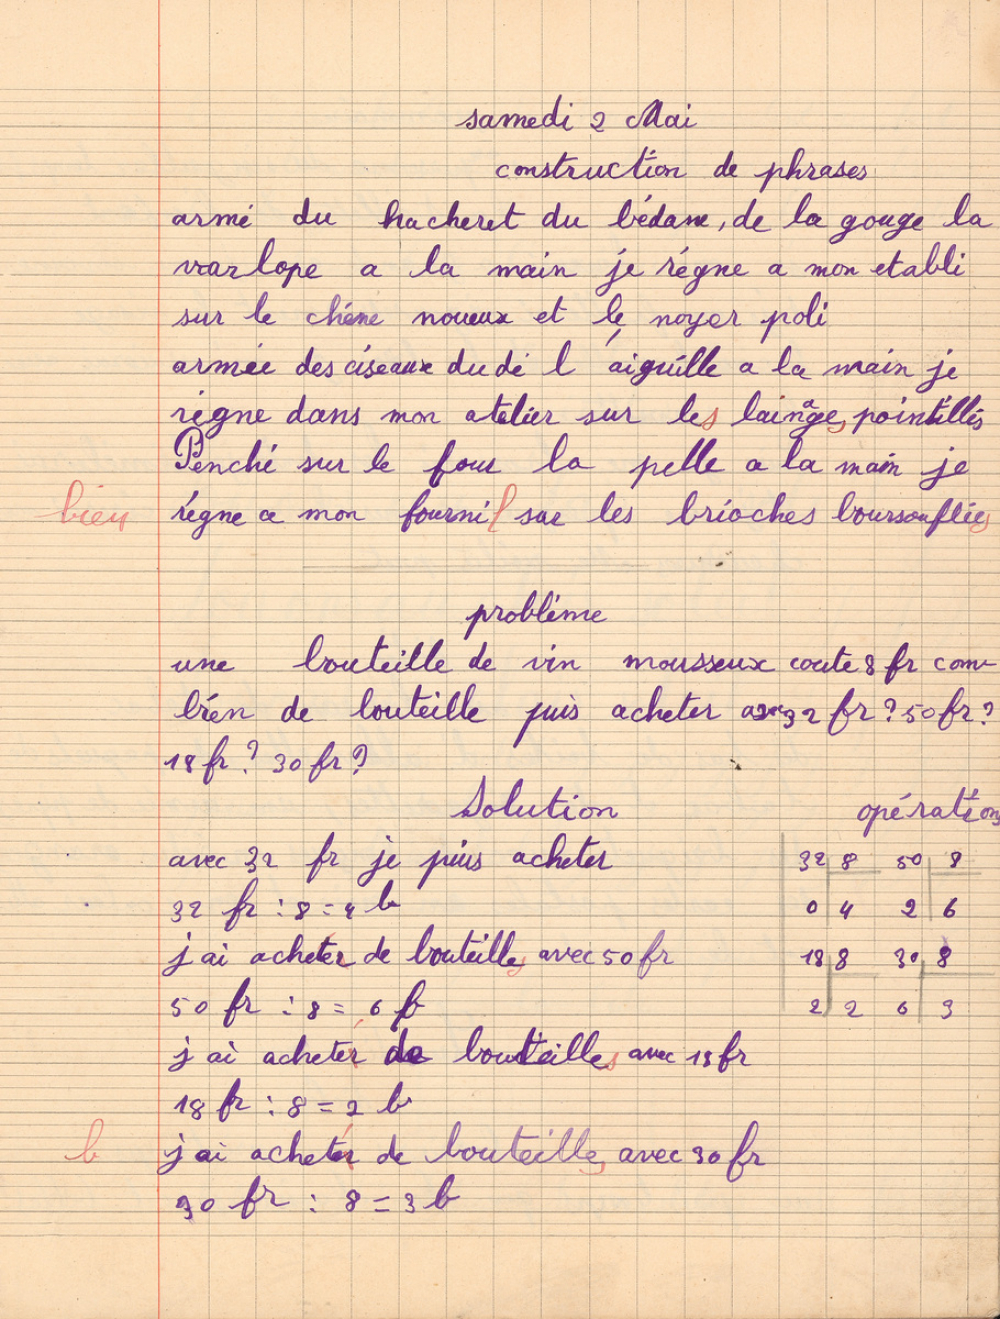 samedi 2 Mai
construction de phrases
armé du hacheret du bédane, de la gouge la
varlope a la main je régne a mon etabli
sur le chéne noueux et le noyer poli
armée des ciseaux du dé l'aiguille a la main je
règne dans mon atelier sur les lainages pointillés
Penché sur le four la pelle a la main je
bien
régne a mon fournil sur les brioches boursouflées
problème
une bouteille de vin mousseux coute 8 fr com-
bien de bouteille puis acheter avec 32 fr ? 50 fr ?
18 fr ? 30 fr ?
Solution opérations
avec 32 fr je puis acheter
32 8 50 8
32 fr : 8 = 4 b
0 4 2 6
j'ai acheter de bouteilles avec 50 fr
18 8 30 8
50 fr : 8 = 6 b
2 2 6 3
j ai acheté de bouteilles avec 18 fr
18 fr : 8 = 2 b
b
j ai acheter de bouteilles avec 30 fr
30 fr : 8 = 3 b